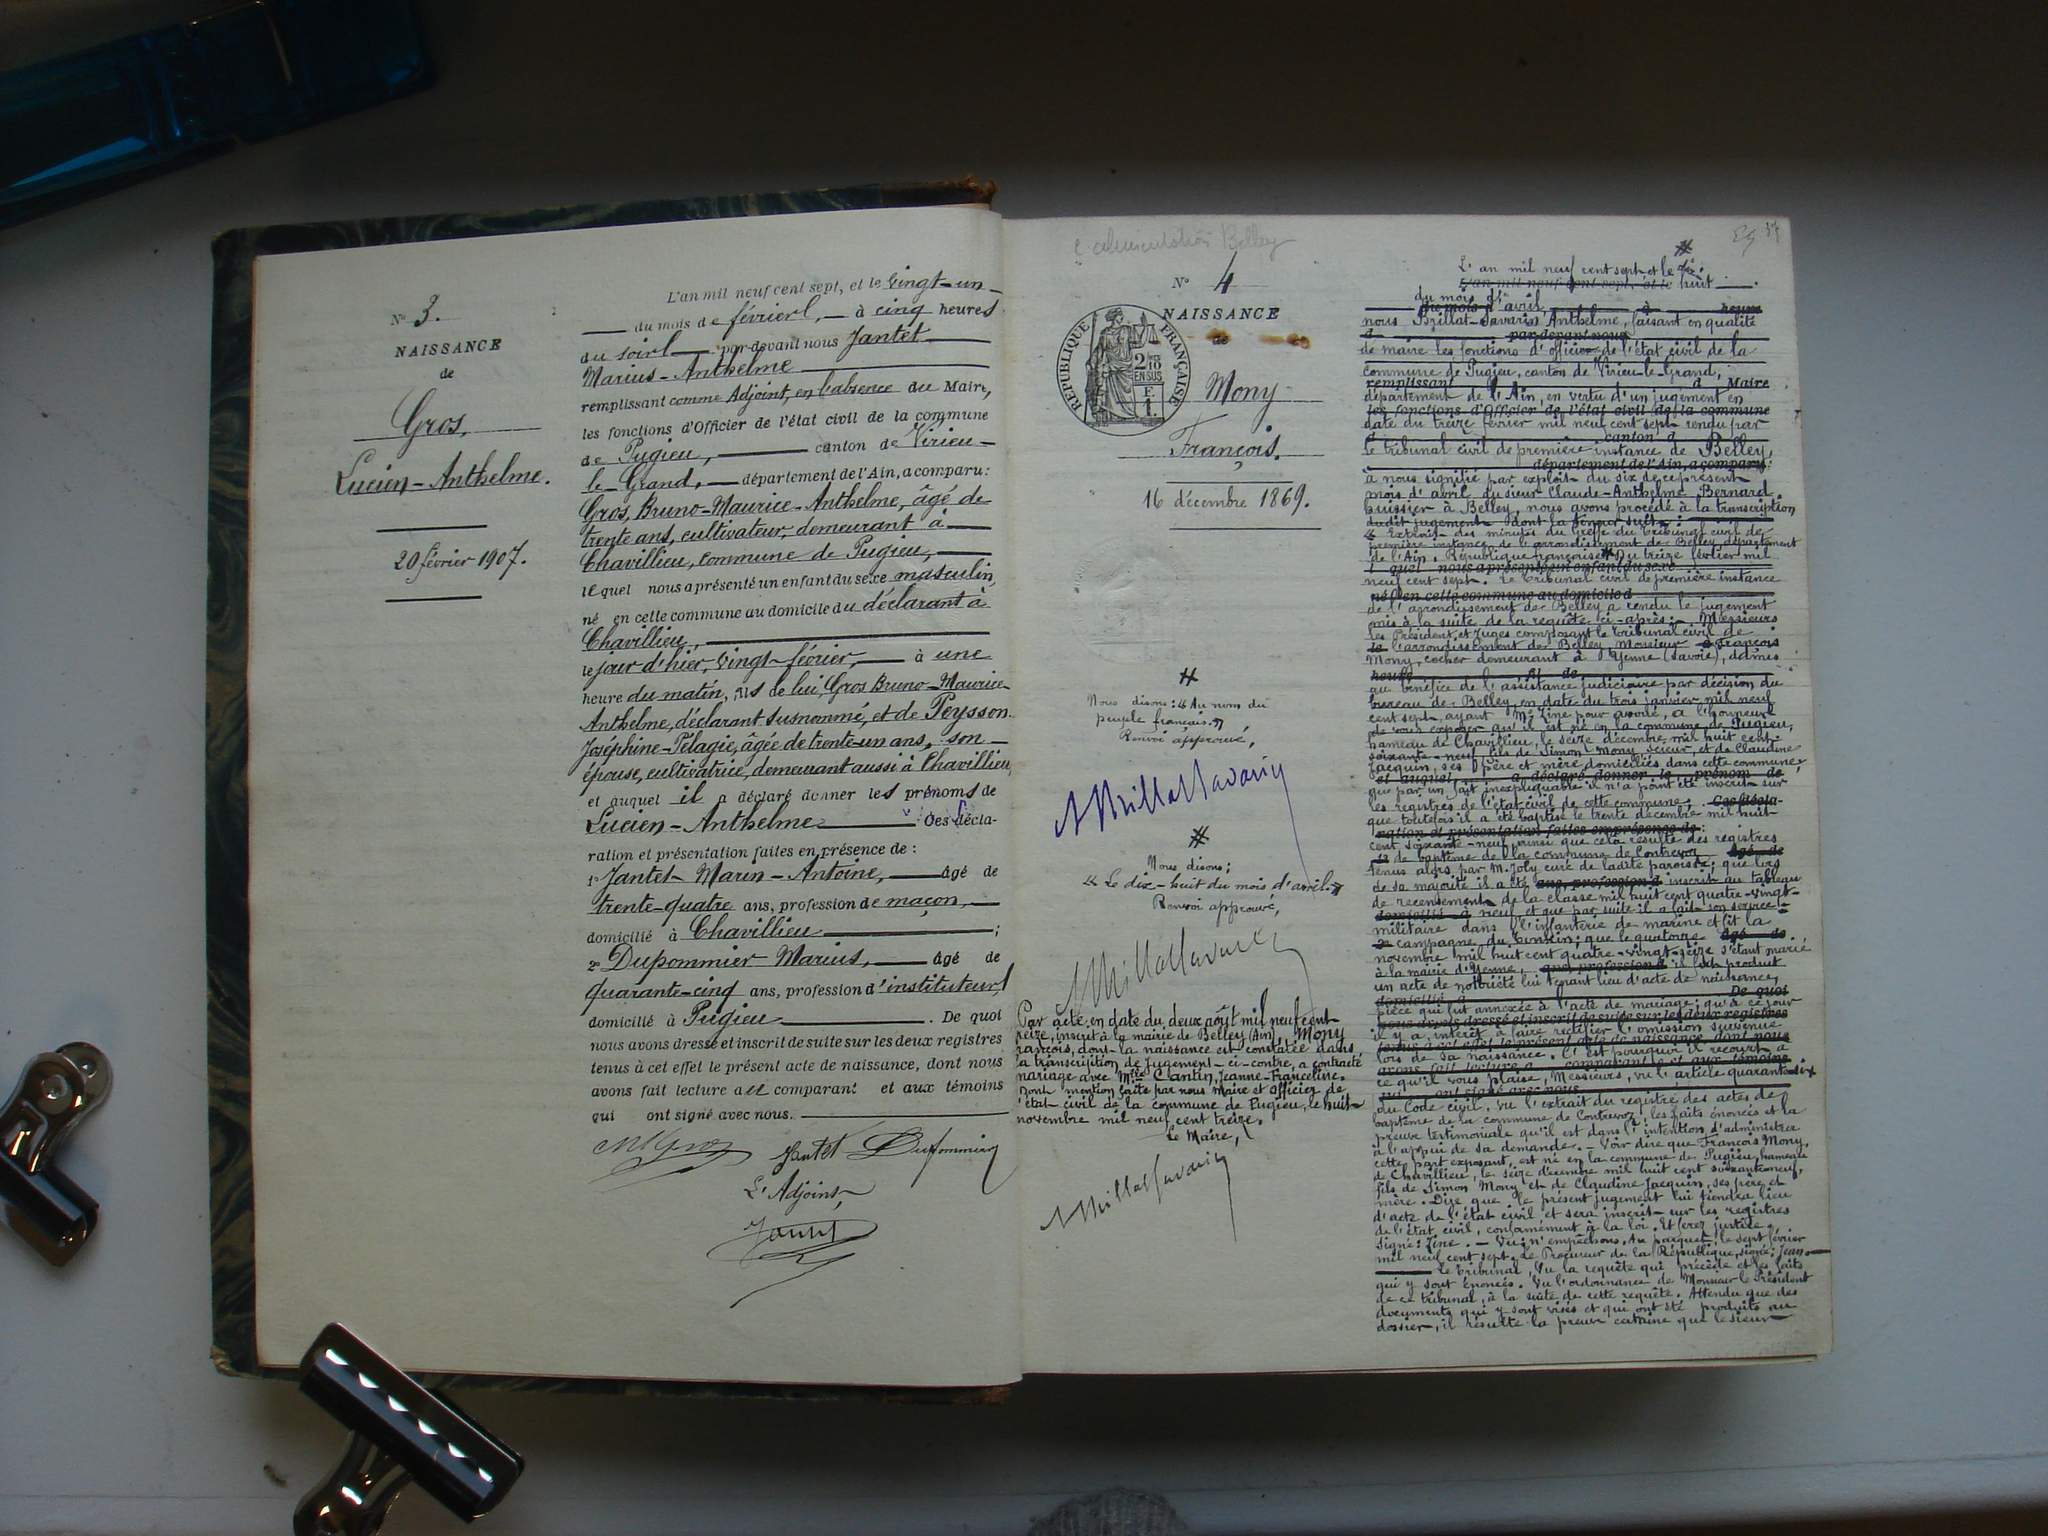 N° 3.
NAISSANCE
de
Gros,
Lucien-Anthelme.
20 février 1907.
L'an mil neuf cent sept, et le vingt-un
du mois de février, à cinq heures
du soir par-devant nous Jantet
Marius-Anthelme
remplissant comme Adjoint, en l'absence du Maire,
les fonctions d'Officier de l'état civil de la commune
de Pugieu, canton de Virieu-
le-Grand, département de l'Ain, a comparu:
Gros, Bruno-Maurice-Anthelme, âgé de
trente ans, cultivateur, demeurant à
Chavillieu, commune de Pugieu,
lequel nous a présenté un enfant du sexe masculin,
né en cette commune au domicile du déclarant à
Chavillieu,
le jour d'hier, vingt février, à une
heure du matin, fils de lui, Gros Bruno-Maurice-
Anthelme, déclarant susnommé, et de Peysson
Joséphine-Pélagie, âgée de trente-un ans, son
épouse, cultivatrice, demeurant aussi à Chavillieu,
et auquel il a déclaré donner les prénoms de
Lucien-Anthelme Ces décla-
ration et présentation faites en présence de :
1° Jantet Marin-Antoine, âgé de
trente-quatre ans, profession de maçon,
domicilié à Chavillieu ;
2° Dupommier Marius, âgé de
quarante-cinq ans, profession d'instituteur,
domicilié à Pugieu. De quoi
nous avons dressé et inscrit de suite sur les deux registres
tenus à cet effet le présent acte de naissance, dont nous
avons fait lecture au comparant et aux témoins
qui ont signé avec nous.
Jantet Dupommier
L'Adjoint,
Jantet
Belley
N° 4
NAISSANCE
de
RÉPUBLIQUE FRANÇAISE
2/10 EN SUS
Mony
François.
16 décembre 1869.
Nous disons: "Au nom du
peuple français."
Renvoi approuvé,
A Brillat Savarin
Nous disons;
"Le dix-huit du mois d'avril."
Renvoi approuvé,
A Brillat Savarin
Par acte en date du deux août mil neuf cent
treize, inscrit à la mairie de Belley (Ain) Mony
François, dont la naissance est constatée dans
la transcription de jugement ci-contre, a contracté
mariage avec Cantin, Jeanne-Franceline.
Dont mention faite par nous Maire et officier de
l'état civil de la commune de Pugieu, le huit
novembre mil neuf cent treize.
Le Maire,
A Brillat Savarin
L'an mil neuf cent sept et le
huit
du mois d'avril
nous Brillat-Savarin Anthelme, faisant en qualité
de maire les fonctions d'officier de l'état civil de la
commune de Pugieu, canton de Virieu-le-Grand,
département de l'Ain, en vertu d'un jugement en
date du treize février mil neuf cent sept rendu par
le tribunal civil de première instance de Belley,
à nous signifié par exploit du six de ce présent
mois d'avril, du sieur Claude-Anthelme Bernard
huissier à Belley, nous avons procédé à la transcription
dudit jugement dont la teneur suit:
"Extrait des minutes du Greffe du Tribunal civil de
première instance de l'arrondissement de Belley département
de l'Ain. République française. Du treize février mil
neuf cent sept. Le Tribunal civil de première instance
de l'arrondissement de Belley a rendu le jugement
mis à la suite de la requête ci-après: Messieurs
les Président et Juges composant le Tribunal civil de
l'arrondissement de Belley, Monsieur François
Mony, cocher demeurant à Yenne (Savoie), admis
au bénéfice de l'assistance judiciaire par décision du
bureau de Belley, en date du trois janvier mil neuf
cent sept, ayant Me Zine pour avoué, a l'honneur
de vous exposer qu'il est né en la commune de Pugieu,
hameau de Chavillieu, le seize décembre mil huit cent
soixante-neuf, fils de Simon Mony scieur, et de Claudine
Jacquin, ses père et mère domiciliés dans cette commune,
que par un fait inexpliquable il n'a point été inscrit sur
les registres de l'état civil de cette commune;
que toutefois il a été baptisé le trente décembre mil huit
cent soixante-neuf, ainsi que cela résulte des registres
de baptême de la commune de Contrevoz
tenus alors par M. Joly curé de ladite paroisse; que lors
de sa majorité il a été inscrit au tableau
de recensement de la classe mil huit cent quatre-vingt-
neuf, et que par suite il a fait son service
militaire dans l'infanterie de marine et fit la
campagne du Tonkin; que le quatorze
novembre mil huit cent quatre-vingt-seize s'étant marié
à la mairie d'Yenne, il produit
un acte de notoriété lui tenant lieu d'acte de naissance,
pièce qui fut annexée à l'acte de mariage; qu'à ce jour
il y a intérêt à faire rectifier l'omission survenue
lors de sa naissance. C'est pourquoi il recourt à
ce qu'il vous plaise, Messieurs, vu l'article quarante-six
du Code civil, vu l'extrait du registre des actes de
baptême de la commune de Contrevoz, les faits énoncés et la
preuve testimoniale qu'il est dans l'intention d'administrer
à l'appui de sa demande. - Voir dire que François Mony,
cette part exposant, est né en la commune de Pugieu, hameau
de Chavillieu, le seize décembre mil huit cent soixante-neuf,
fils de Simon Mony et de Claudine Jacquin, ses père et
mère. Dire que le présent jugement lui tiendra lieu
d'acte de l'état civil et sera inscrit sur les registres
de l'état civil, conformément à la loi. Et ferez justice.
Signé: Zine. - Vu: n'empêchons. Au parquet, le sept février
mil neuf cent sept. Le Procureur de la République, signé: Jean.
Le Tribunal, Vu la requête qui précède et les faits
qui y sont énoncés. Vu l'ordonnance de Monsieur le Président
de ce tribunal, à la suite de cette requête. Attendu que des
documents qui y sont visés et qui ont été produits au
dossier, il résulte la preuve certaine que le sieur